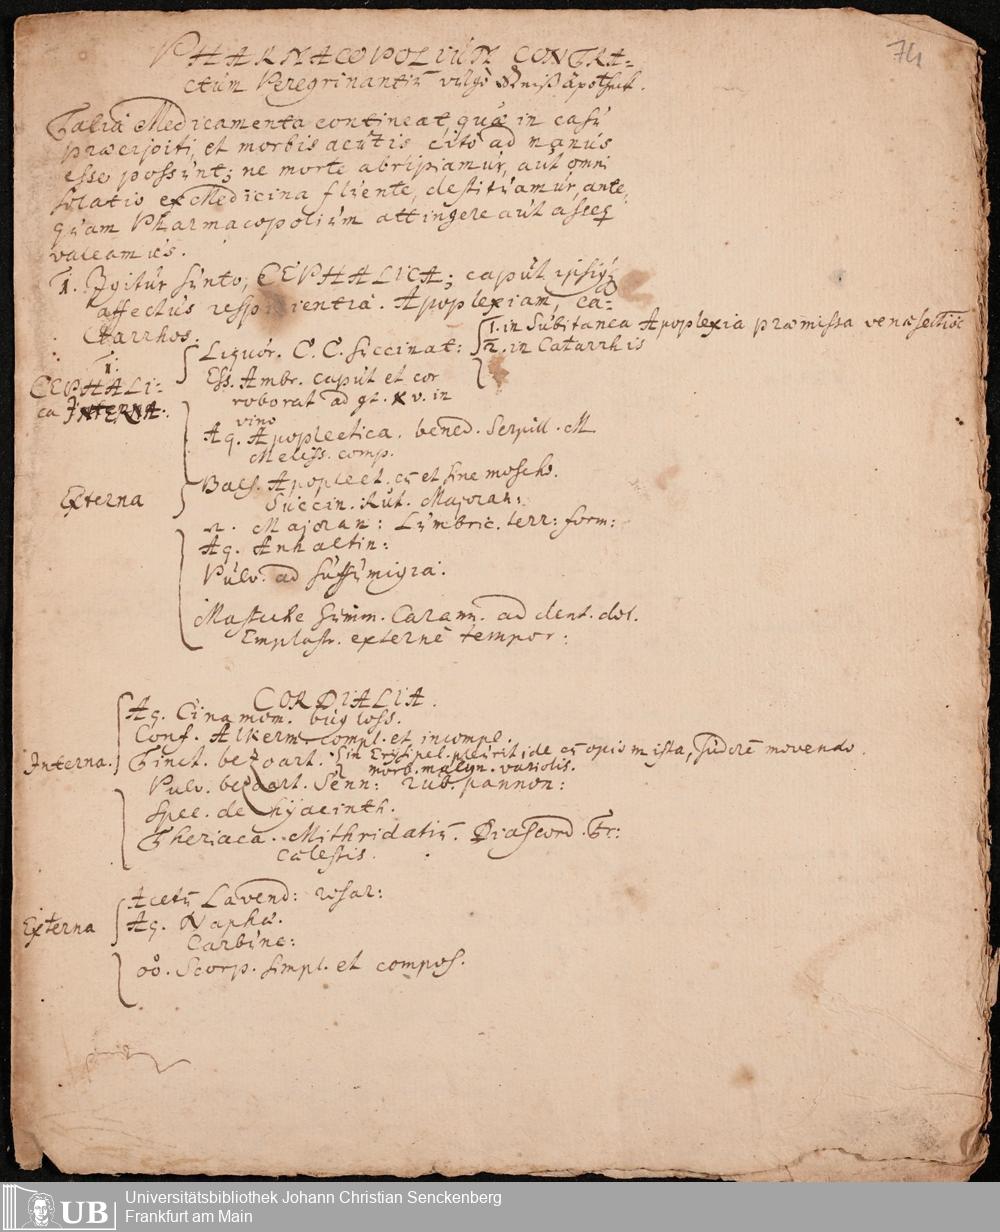 74
PHARMACOPOLIUM CONTRA=
ctum Peregrinantiū vulgo Reißapothek.
Talia Medicamenta contineat, quæ in casu
præcipiti, et morbis acutis cito ad manus
esse possunt; ne morte abripiamur, aut omni
solatio ex Medicina fluente, destituamur, ante,
quam Pharmacopolium attingere aut asseq
valeamus.
1. Igitur sunto, CEPHALICA; caput ipsiq
affectus respicientia. Apoplexiam, ca=
tharrhos.
1. in Subitanea Apoplexia præmissa venæsectiōe
Liquor. C. C. Succinat: 2. in Catarrhis
1.
CEPHALI=
ca INTERNA:
Ess. Ambr. caput et cor
roborat ad gt. xv. in
vino
Aq. Apoplectica. bened. Serpill. M
Meliss. comp.
Externa
Bals. Apoplect. c et sine moscho.
Succin. Rut. Majoran:
Majoran: Lumbric. terr: form:
Aq. Anhaltin:
Pulv. ad suffumigia.
Mastiche Gumm. Carann. ad dent. dol.
Emplastr. externe tempor:
CORDIALIA.
Aq. Cinamom. bugloss.
Conf. Alkerm. compl. et incompl.
Interna. Tinct. bezoart. in Erysipel. pleuritide c opio mista, sudore movendo.
morb. malign. variolis.
Pulv. bezoart. Senn: rub. pannon:
Spec. de hyacinth.
Theriaca. Mithridatiū. Diascord. Tr:
cælestis.
Externa
Acetū Lavend: rosar:
Aq. Naphæ.
Carbunc:
oo. Scorp. simpl. et compos.
Universitätsbibliothek Johann Christian Senckenberg
UB Frankfurt am Main